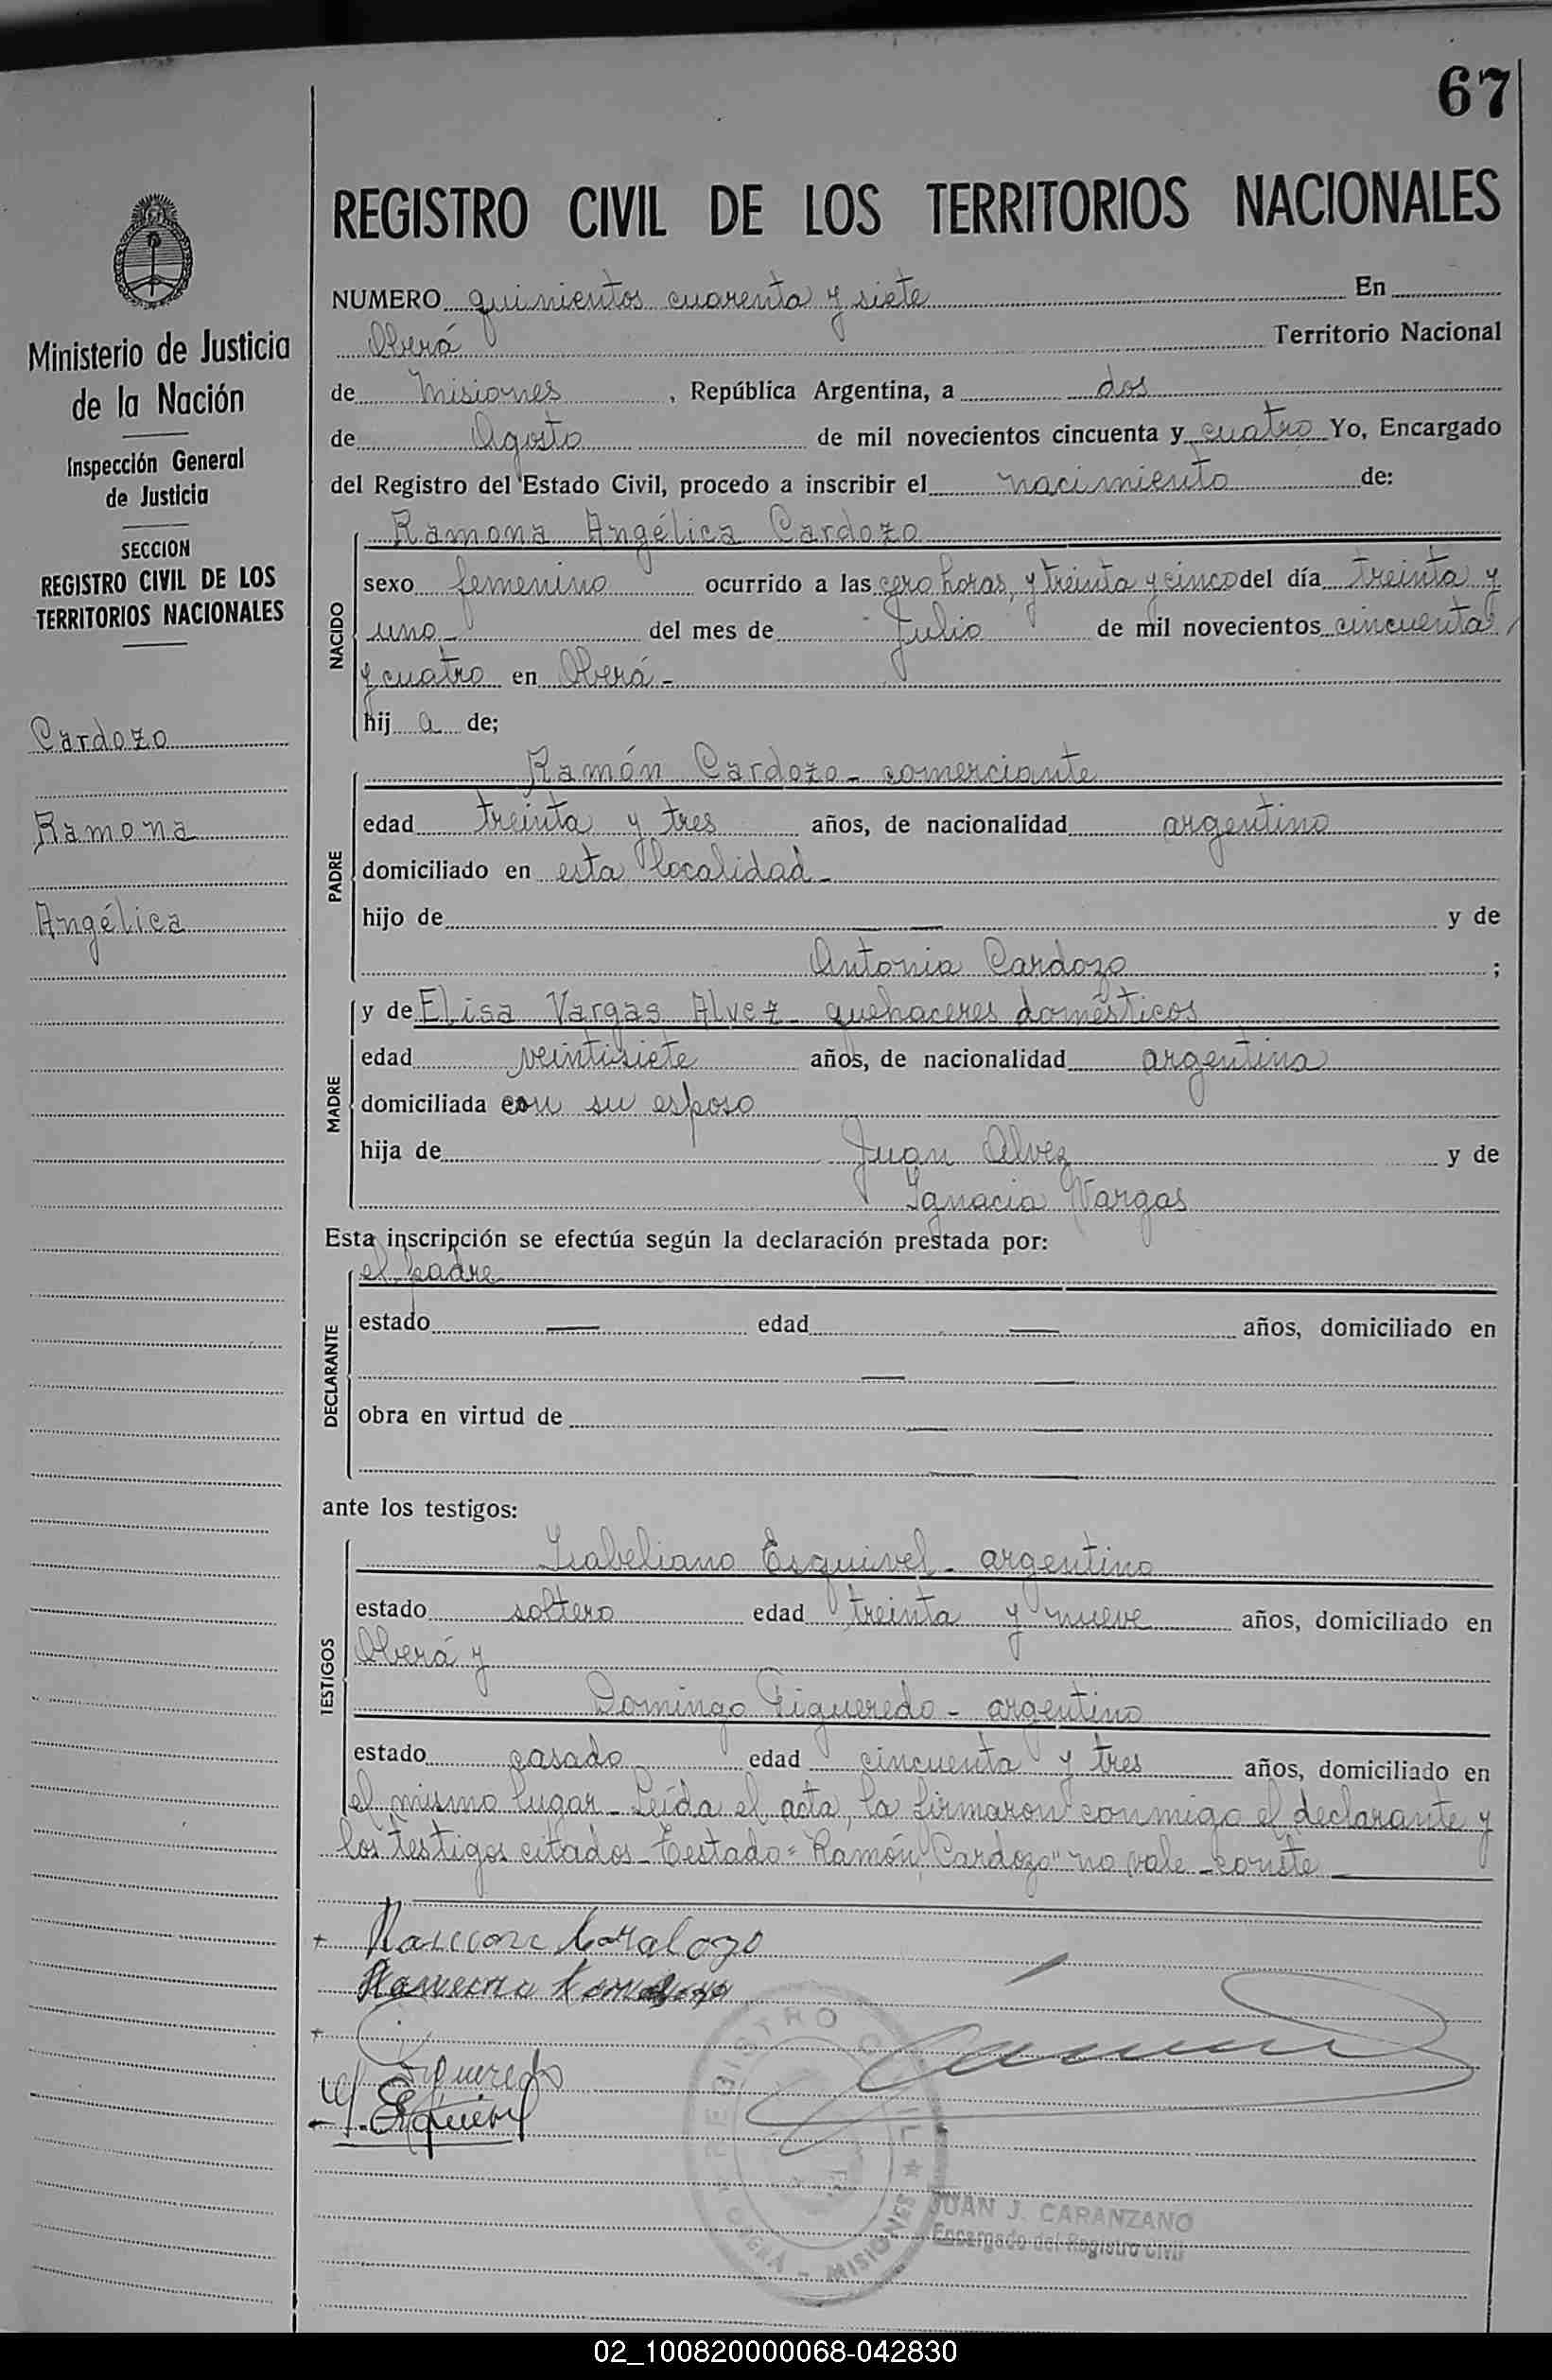 67
REGISTRO CIVIL DE LOS TERRITORIOS NACIONALES
Ministerio de Justicia
de la Nación
Inspección General
de Justicia
SECCION
REGISTRO CIVIL DE LOS
TERRITORIOS NACIONALES
Cardozo
Ramona
Angélica
NUMERO quinientos cuarenta y siete En
Oberá Territorio Nacional
de Misiones, República Argentina, a dos
de Agosto de mil novecientos cincuenta y cuatro Yo, Encargado
del Registro del Estado Civil, procedo a inscribir el nacimiento de:
NACIDO
Ramona Angélica Cardozo
sexo femenino ocurrido a las cero horas, y treinta y cinco del día treinta y
uno - del mes de Julio de mil novecientos cincuenta
y cuatro en Oberá -
hij a de;
PADRE
Ramón Cardozo - comerciante
edad treinta y tres años, de nacionalidad argentino
domiciliado en esta localidad -
hijo de — y de
Antonia Cardozo ;
MADRE
y de Elisa Vargas Alvez - quehaceres domésticos
edad veintisiete años, de nacionalidad argentina
domiciliada con su esposo
hija de Juan Alvez y de
Ignacia Vargas
Esta inscripción se efectúa según la declaración prestada por:
DECLARANTE
el padre
estado — edad — años, domiciliado en
— —
obra en virtud de — —
— —
ante los testigos:
TESTIGOS
Isabeliano Esquivel - argentino
estado soltero edad treinta y nueve años, domiciliado en
Oberá y
Domingo Figueredo - argentino
estado casado edad cincuenta y tres años, domiciliado en
el mismo lugar - Leída el acta, la firmaron conmigo el declarante y
los testigos citados - Testado = "Ramón Cardozo" no vale - conste
Figueredo
Esquivel
REGISTRO CIVIL
OBERÁ - MISIONES
JUAN J. CARANZANO
Encargado del Registro Civil
02_100820000068-042830